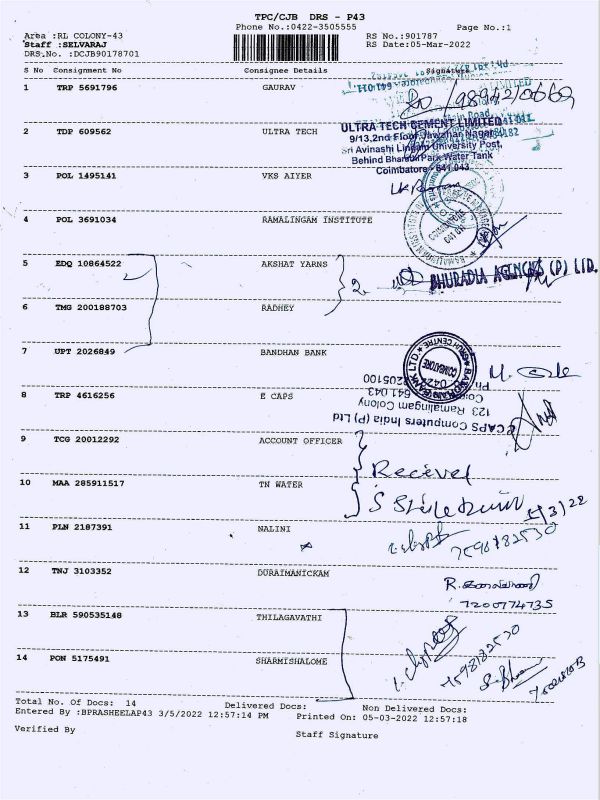 TPC/CJB DRS - P43
Phone No.:0422-3505555 Page No.:1
Area :RL COLONY-43 RS No.:901787
Staff :SELVARAJ RS Date:05-Mar-2022
DRS.No. :DCJB90178701
S No Consignment No Consignee Details Signature
1 TRP 5691796 GAURAV
2 TDP 609562 ULTRA TECH
ULTRA TECH CEMENT LIMITED
9/13,2nd Floor, Jawahar Nagar
Sri Avinashi Lingam University Post,
Behind Bharath Park Water Tank
Coimbatore - 641 043
3 POL 1495141 VKS AIYER
4 POL 3691034 RAMALINGAM INSTITUTE
5 EDQ 10864522 AKSHAT YARNS
2. BHURADIA AGENCIES (P) LTD.
6 TMG 200188703 RADHEY
7 UPT 2026849 BANDHAN BANK
8 TRP 4616256 E CAPS
CAPS Computers India (P) Ltd
123 Ramalingam Colony
641 043
9 TCG 20012292 ACCOUNT OFFICER
Recevel
10 MAA 285911517 TN WATER
5/3/22
11 PLN 2187391 NALINI
7598182530
12 TNJ 3103352 DURAIMANICKAM
7200774735
13 BLR 590535148 THILAGAVATHI
7598182530
14 PON 5175491 SHARMISHALOME
Total No. Of Docs: 14 Delivered Docs: Non Delivered Docs:
Entered By :BPRASHEELAP43 3/5/2022 12:57:14 PM Printed On: 05-03-2022 12:57:18
Verified By Staff Signature